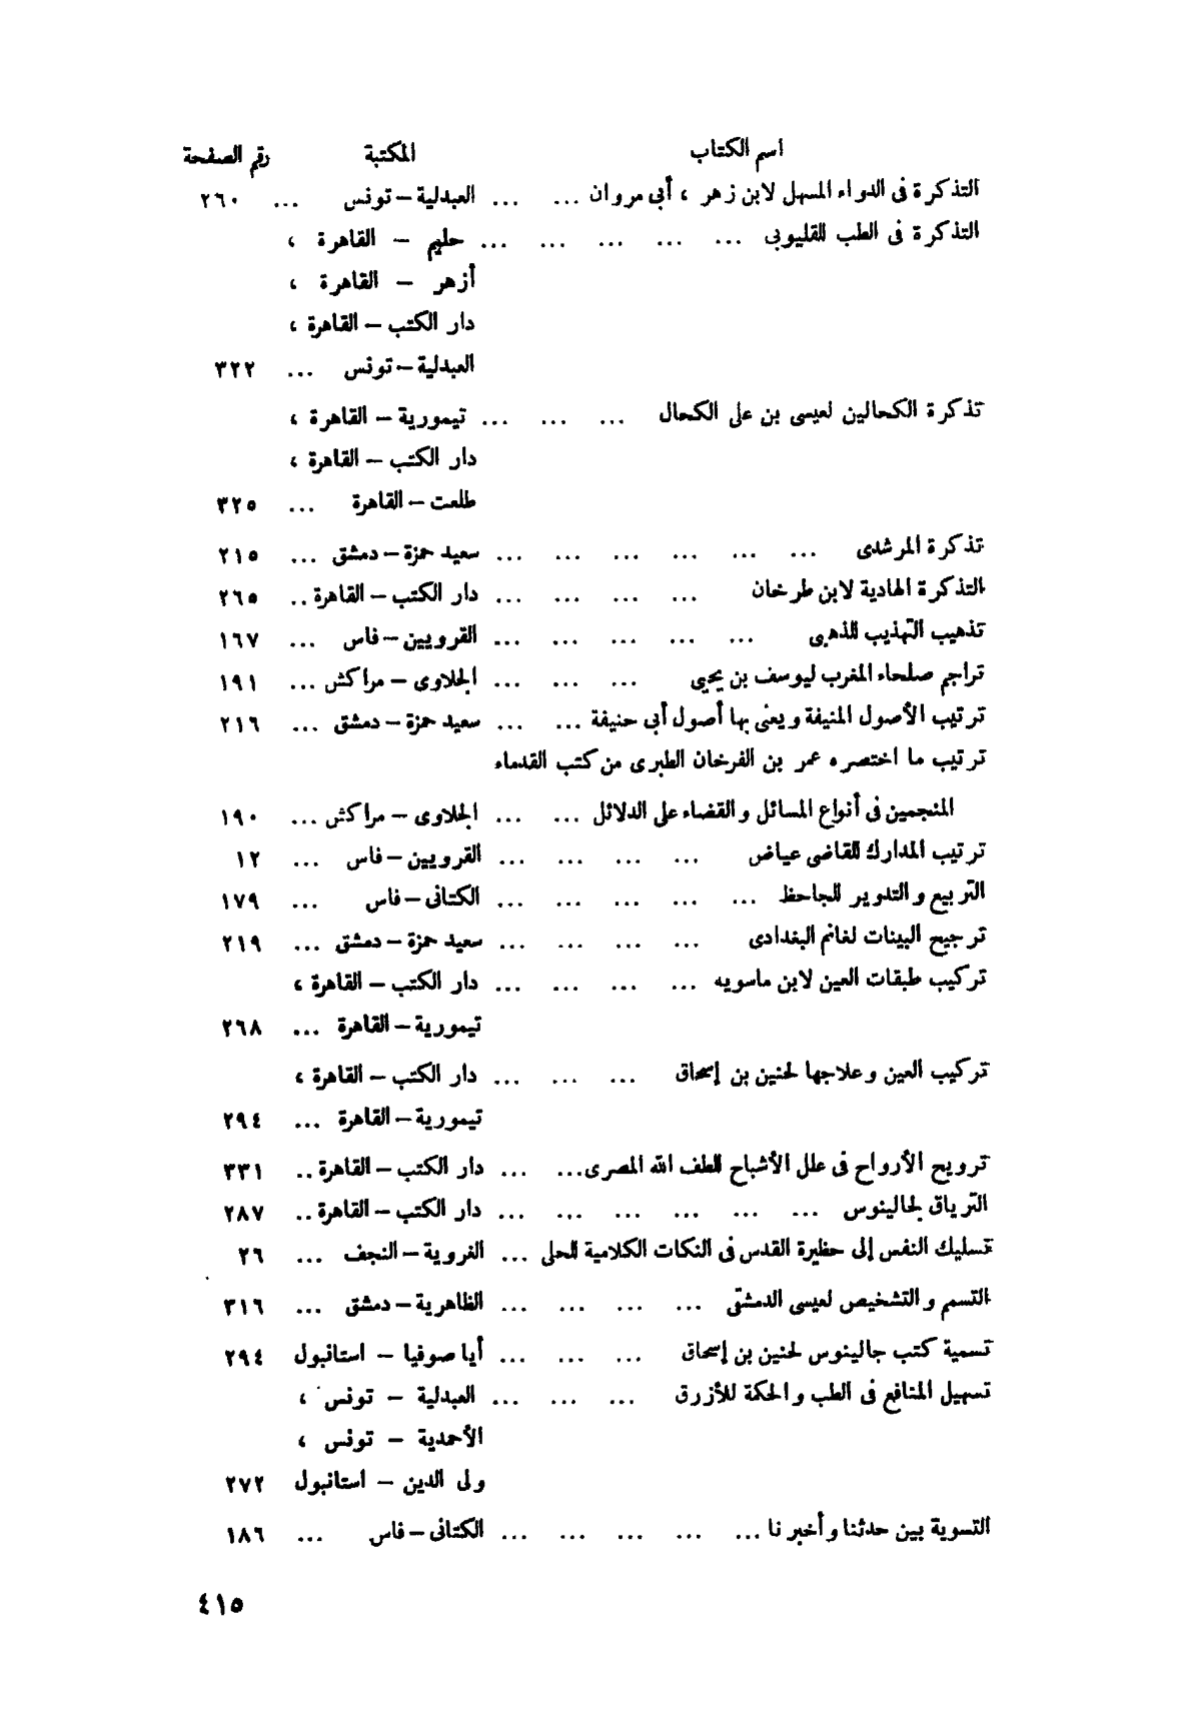 اسم الكتاب المكتبة رقم الصفحة
التذكرة فى الدواء المسهل لابن زهر ، أبى مروان ... ... العبدلية – تونس ... ٢٦٠
التذكرة فى الطب للقليوبى ... ... ... ... ... حليم – القاهرة ،
أزهر – القاهرة ،
دار الكتب – القاهرة ،
العبدلية – تونس ... ٣٢٢
تذكرة الكحالين لعيسى بن على الكحال ... ... ... تيمورية – القاهرة ،
دار الكتب – القاهرة ،
طلعت – القاهرة ... ٣٢٥
تذكرة المرشدى ... ... ... ... ... ... سعيد حمزة – دمشق ... ٢١٥
التذكرة الهادية لابن طرخان ... ... ... ... دار الكتب – القاهرة .. ٢٦٥
تذهيب التهذيب للذهبى ... ... ... ... ... القرويين – فاس ... ١٦٧
تراجم صلحاء المغرب ليوسف بن يحيى ... ... ... الجلاوى – مراكش ... ١٩١
ترتيب الأصول المنيفة ويعنى بها أصول أبى حنيفة ... ... سعيد حمزة – دمشق ... ٢١٦
ترتيب ما اختصره عمر بن الفرخان الطبرى من كتب القدماء
المنجمين فى أنواع المسائل والقضاء على الدلائل ... ... الجلاوى – مراكش ... ١٩٠
ترتيب المدارك للقاضى عياض ... ... ... ... القرويين – فاس ... ١٢
التربيع والتدوير للجاحظ ... ... ... ... ... الكتانى – فاس ... ١٧٩
ترجيح البينات لغانم البغدادى ... ... ... ... سعيد حمزة – دمشق ... ٢١٩
تركيب طبقات العين لابن ماسويه ... ... ... ... دار الكتب – القاهرة ،
تيمورية – القاهرة ... ٢٦٨
تركيب العين وعلاجها لحنين بن إسحاق ... ... ... دار الكتب – القاهرة ،
تيمورية – القاهرة ... ٢٩٤
ترويح الأرواح فى علل الأشباح للطف الله المصرى ... ... دار الكتب – القاهرة .. ٣٣١
الترياق لجالينوس ... ... ... ... ... ... دار الكتب – القاهرة .. ٢٨٧
تسليك النفس إلى حظيرة القدس فى النكات الكلامية للحلى ... الغروية – النجف ... ٢٦
التسم والتشخيص لعيسى الدمشقى ... ... ... ... الظاهرية – دمشق ... ٣١٦
تسمية كتب جالينوس لحنين بن إسحاق ... ... ... أيا صوفيا – استانبول ٢٩٤
تسهيل المنافع فى الطب والحكمة للأزرق ... ... ... العبدلية – تونس ،
الأحمدية – تونس ،
ولى الدين – استانبول ٢٧٢
التسوية بين حدثنا وأخبرنا ... ... ... ... ... الكتانى – فاس ... ١٨٦
٤١٥